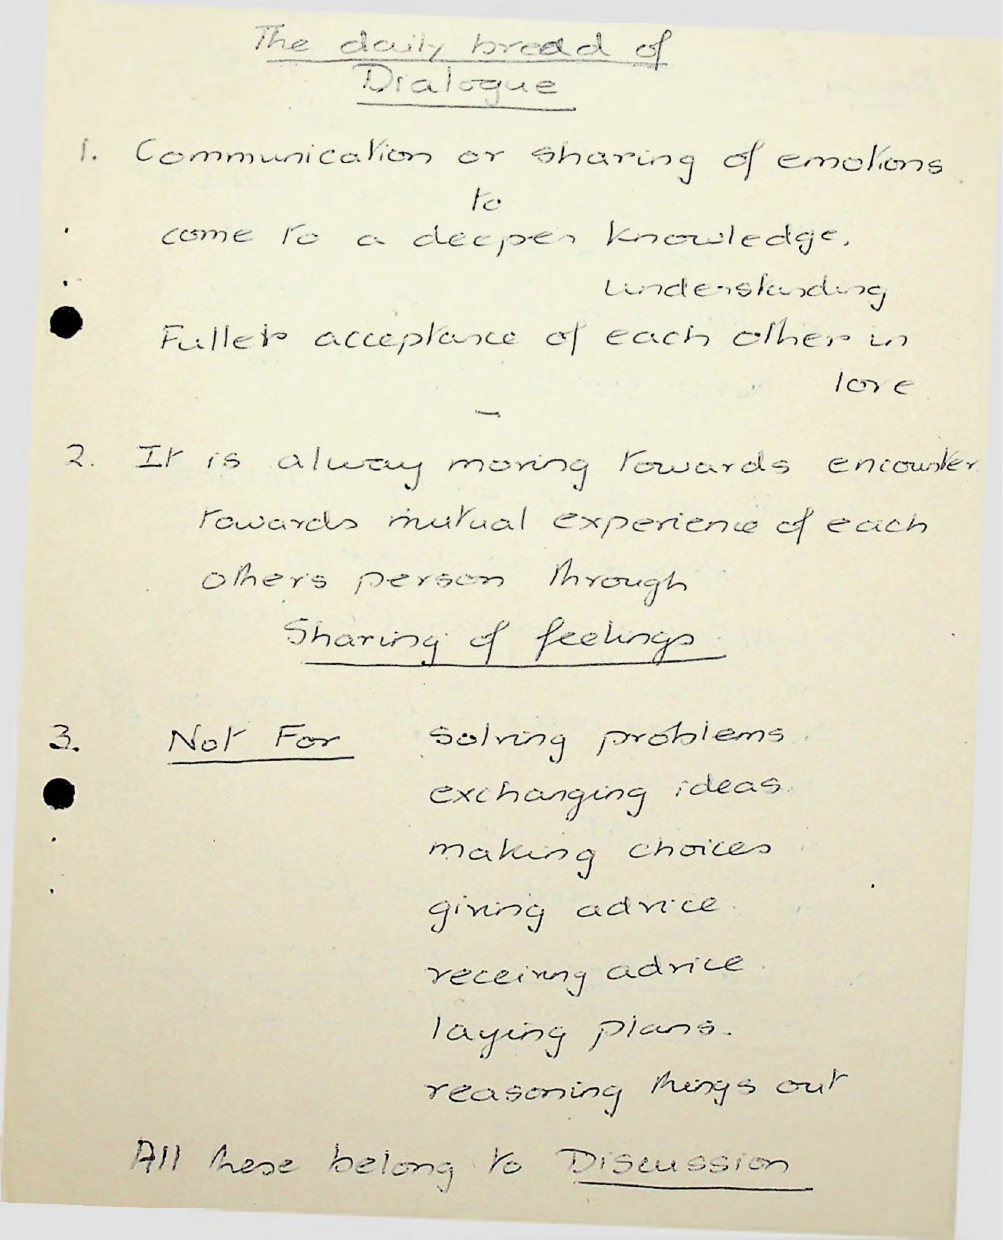 The daily bread of
Dialogue
1. Communication or sharing of emotions
to
come to a deeper knowledge.
understanding
Fuller acceptance of each other in
love
—
2. It is alway moving towards encounter
towards mutual experience of each
others person through
Sharing of feelings
3. Not For solving problems.
exchanging ideas.
making choices
giving advice.
receiving advice.
laying plans.
reasoning things out
All these belong to Discussion